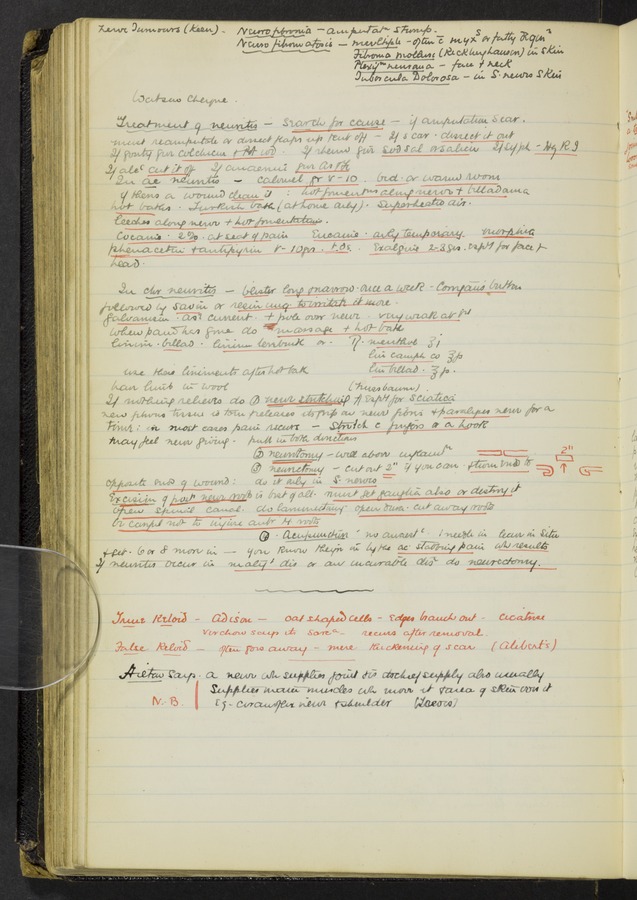 Nerve Tumours (Keen). Neurofibroma - amputatn stump.
Neuro fibromatosis - multiple - often c̄ myxs or fatty degenn
Fibroma molluse (Recklinghausen) in skin
Plexifm neuroma - face & neck
Tubercula Dolorosa - in S. nerves skin
Watson Cheyne.
Treatment of neuritis - Search for cause - if amputation scar.
must reamputate or dissect flaps up & cut off - If scar - dissect it out
If gouty give colchicum & Pot iod - If rheum give Sod sal or salicin If syph - Hg & I
If alcl cut it off If anaemic give As & Fe
In ac neuritis - calomel gr V-10. bed or warm room
If there's a wound clean it : hot fomentns along nerve & belladonna
hot baths. Turkish bath (at home only). Superheated air.
leeches along nerve & hot fomentations.
Cocaine 2% at seat of pain Eucaine - only temporary morphia
phenacetin & antipyrin V-10grs Exalgine 2-3grs esply for face &
head.
In chr neuritis - blister long & narrow once a week - Corrigan's button
followed by savin or resin ung to irritate it more.
galvanism - asc current + pole over nerve - very weak at 1st
when pain has gone do massage & hot bath
linim. bellad. linim terebinth or ℞ menthol ʒi
lin camph co ʒp
use these liniments after hot bath lin bellad. ʒp.
have limb in wool (Nussbaum)
If nothing relieves do ① nerve stretching esply for sciatica
new fibrous tissue is torn & releases its grip on nerve fibres & paralyses nerve for a
time : in most cases pain recurs - stretch c̄ fingers or a hook
may feel nerve giving - pull in both directions
② neurotomy - well above inflamn
③ neurectomy - cut out 2" if you can & turn ends to 2"
opposite ends of wound : do it only in S. nerves
Excision of post nerve roots is best of all - must get ganglia also or destroy it
open spinal canal - do laminectomy open dura - cut away roots
be careful not to injure antr M roots
④ Acupuncture - needle in leave in situ
5 6 or 8 more in - you know they're in by the ac stabbing pain wh results
If neuritis occurs in maligt dis or an incurable dis do neurectomy.
True Keloid - Adison - oat shaped cells - edges branch out - cicatrix
Virchow says its sarca - recurs after removal.
False Keloid - often goes away - mere thickening of scar (Alibert's)
Hilton says - a nerve wh supplies joint & is the chief supply also usually
supplies main muscles wh move it & area of skin over it
N.B. Eg - circumflex nerve & shoulder